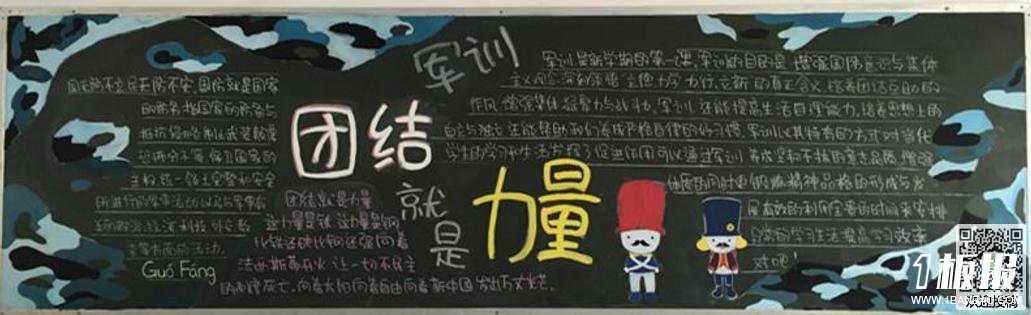 国无防不立，民无防不安，国防就是国家
的防务，指国家的防务与
抵抗侵略，制止武装颠覆
恐怖分子等，保卫国家的
主权统一领土完整和安全
所进行的军事活动，以及与军事有
关的政治经济科技外交教
育等方面的活动。
Guó Fáng
军训
团结
就
是
力量
团结就是力量
这力量是铁，这力量是钢
比铁还硬比钢还强向着
法西斯蒂开火，让一切不民主
的制度死亡。向着太阳向着自由向着新中国发出万丈光芒。
军训是新学期的第一课，军训的目的是增强国防意识与集体
主义观念深刻领悟全德力学力行立新的真正含义，培养团结互助的
作风，增强集体凝聚力与战斗力。军训还能提高生活自理能力，培养思想上的
自立与独立，还能帮助我们养成严格自律的好习惯。军训以其特有的方式对当代
学生的学习和生活发挥了促进作用可以通过军训养成坚韧不拔的意志品质，增强
体质的同时更锻炼精神品格的形成与发
展有效的利用宝贵的时间来安排
日常的学习生活提高学习效率
对吧！
1板报
WWW.1BANBAO.COM
欢迎投稿